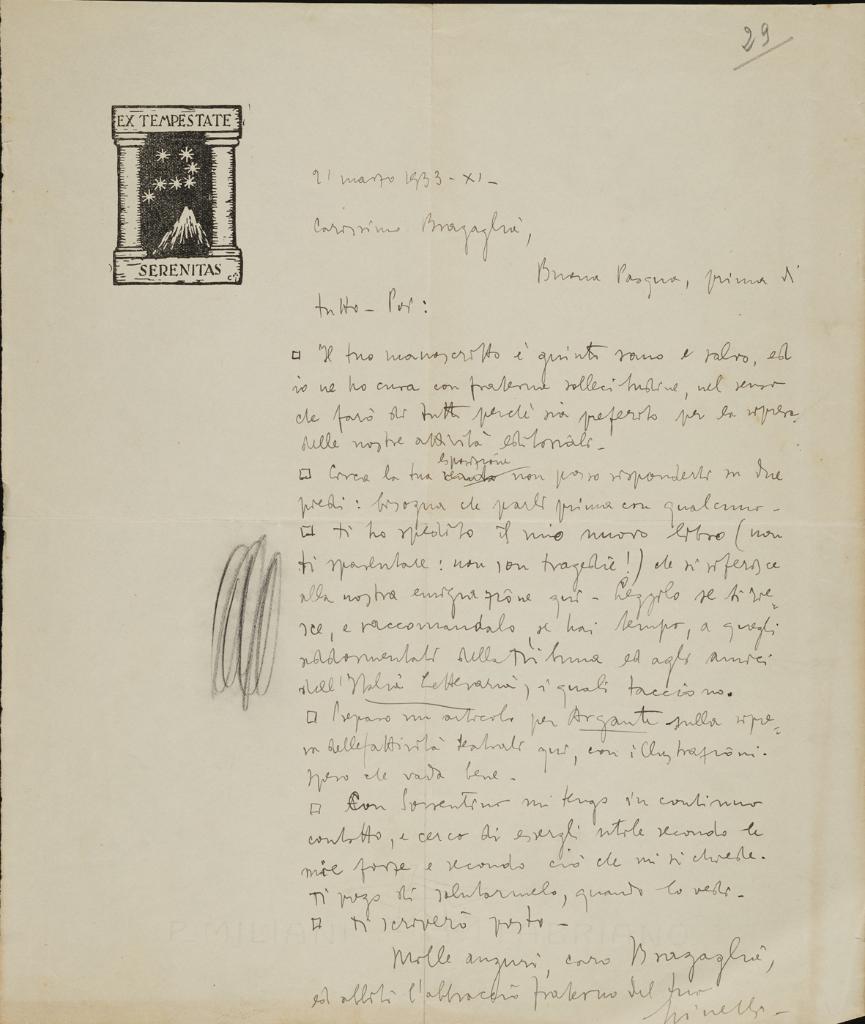 29
EX TEMPESTATE
SERENITAS
21 marzo 1933 - XI -
Carissimo Bragaglia,
Buona Pasqua, prima di
tutto - Poi:
Il tuo manoscritto è giunto sano e salvo, ed
io ne ho cura con fraterna sollecitudine, nel senso
che farò di tutto perché sia preferito per la ripresa
delle nostre attività editoriali -
Circa la tua esposizione non posso risponderti su due
piedi: bisogna che parli prima con qualcuno -
ti ho spedito il mio nuovo libro (non
ti spaventare: non son tragedie!) che si riferisce
alla nostra emigrazione qui - Leggilo se ti rie=
sce, e raccomandalo, se hai tempo, a quegli
addormentati della Tribuna ed agli amici
dell'Italia Letteraria, i quali tacciono.
Preparo un articolo per Argante sulla ripre=
sa delle attività teatrali qui, con illustrazioni.
Spero che vada bene -
Con Sorrentino mi tengo in continuo
contatto, e cerco di essergli utile secondo le
mie forze e secondo ciò che mi si chiede.
Ti prego di salutarmelo, quando lo vedi -
ti scriverò presto -
Mille auguri, caro Bragaglia,
ed abbiti l'abbraccio fraterno del tuo